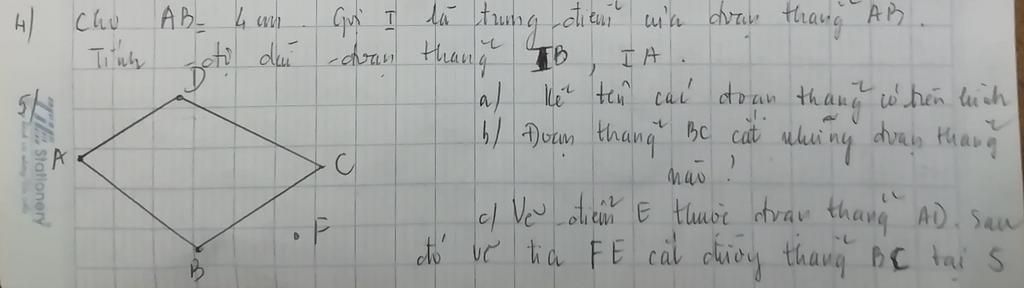 4) Cho AB = 4 cm. Gọi I là trung điểm của đoạn thẳng AB.
Tính độ dài đoạn thẳng IB, IA.
5)
D
A
C
B
F
Stationery
a) Kể tên các đoạn thẳng có trên hình
b) Đoạn thẳng BC cắt những đoạn thẳng
nào?
c) Vẽ điểm E thuộc đoạn thẳng AD. Sau
đó vẽ tia FE cắt đường thẳng BC tại S